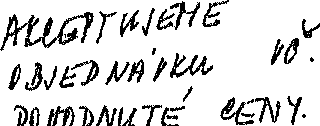 AKCEPTUJEME
OBJEDNÁVKU VČ.
DOHODNUTÉ CENY.